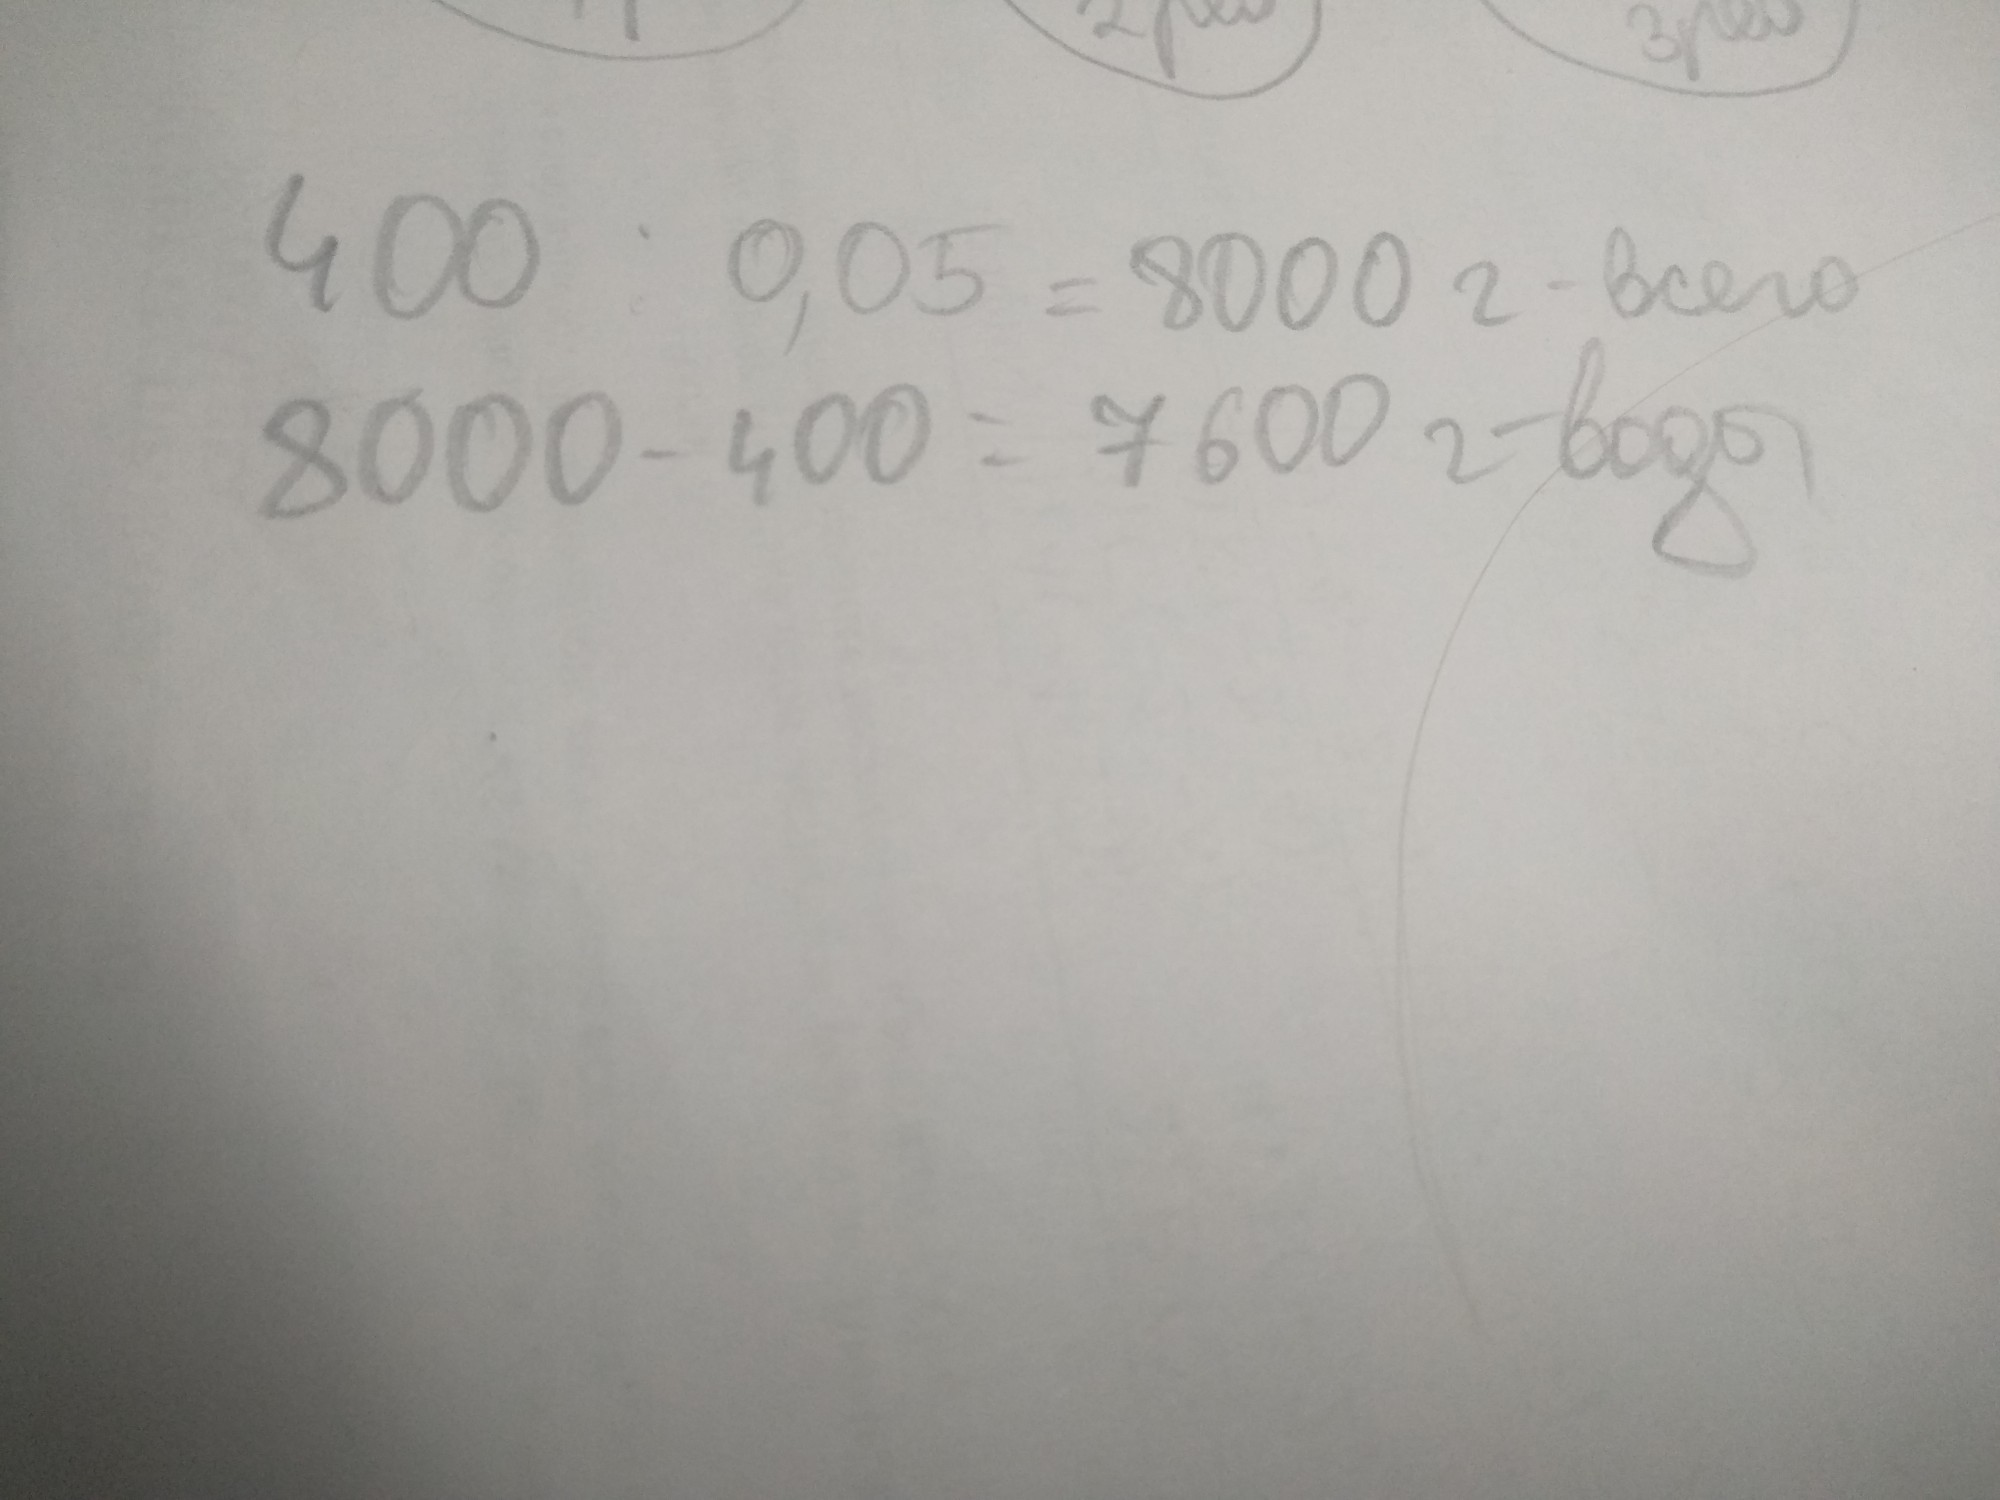 2 рев 3 рев
400 : 0,05 = 8000 г - всего
8000 - 400 = 7600 г - воды